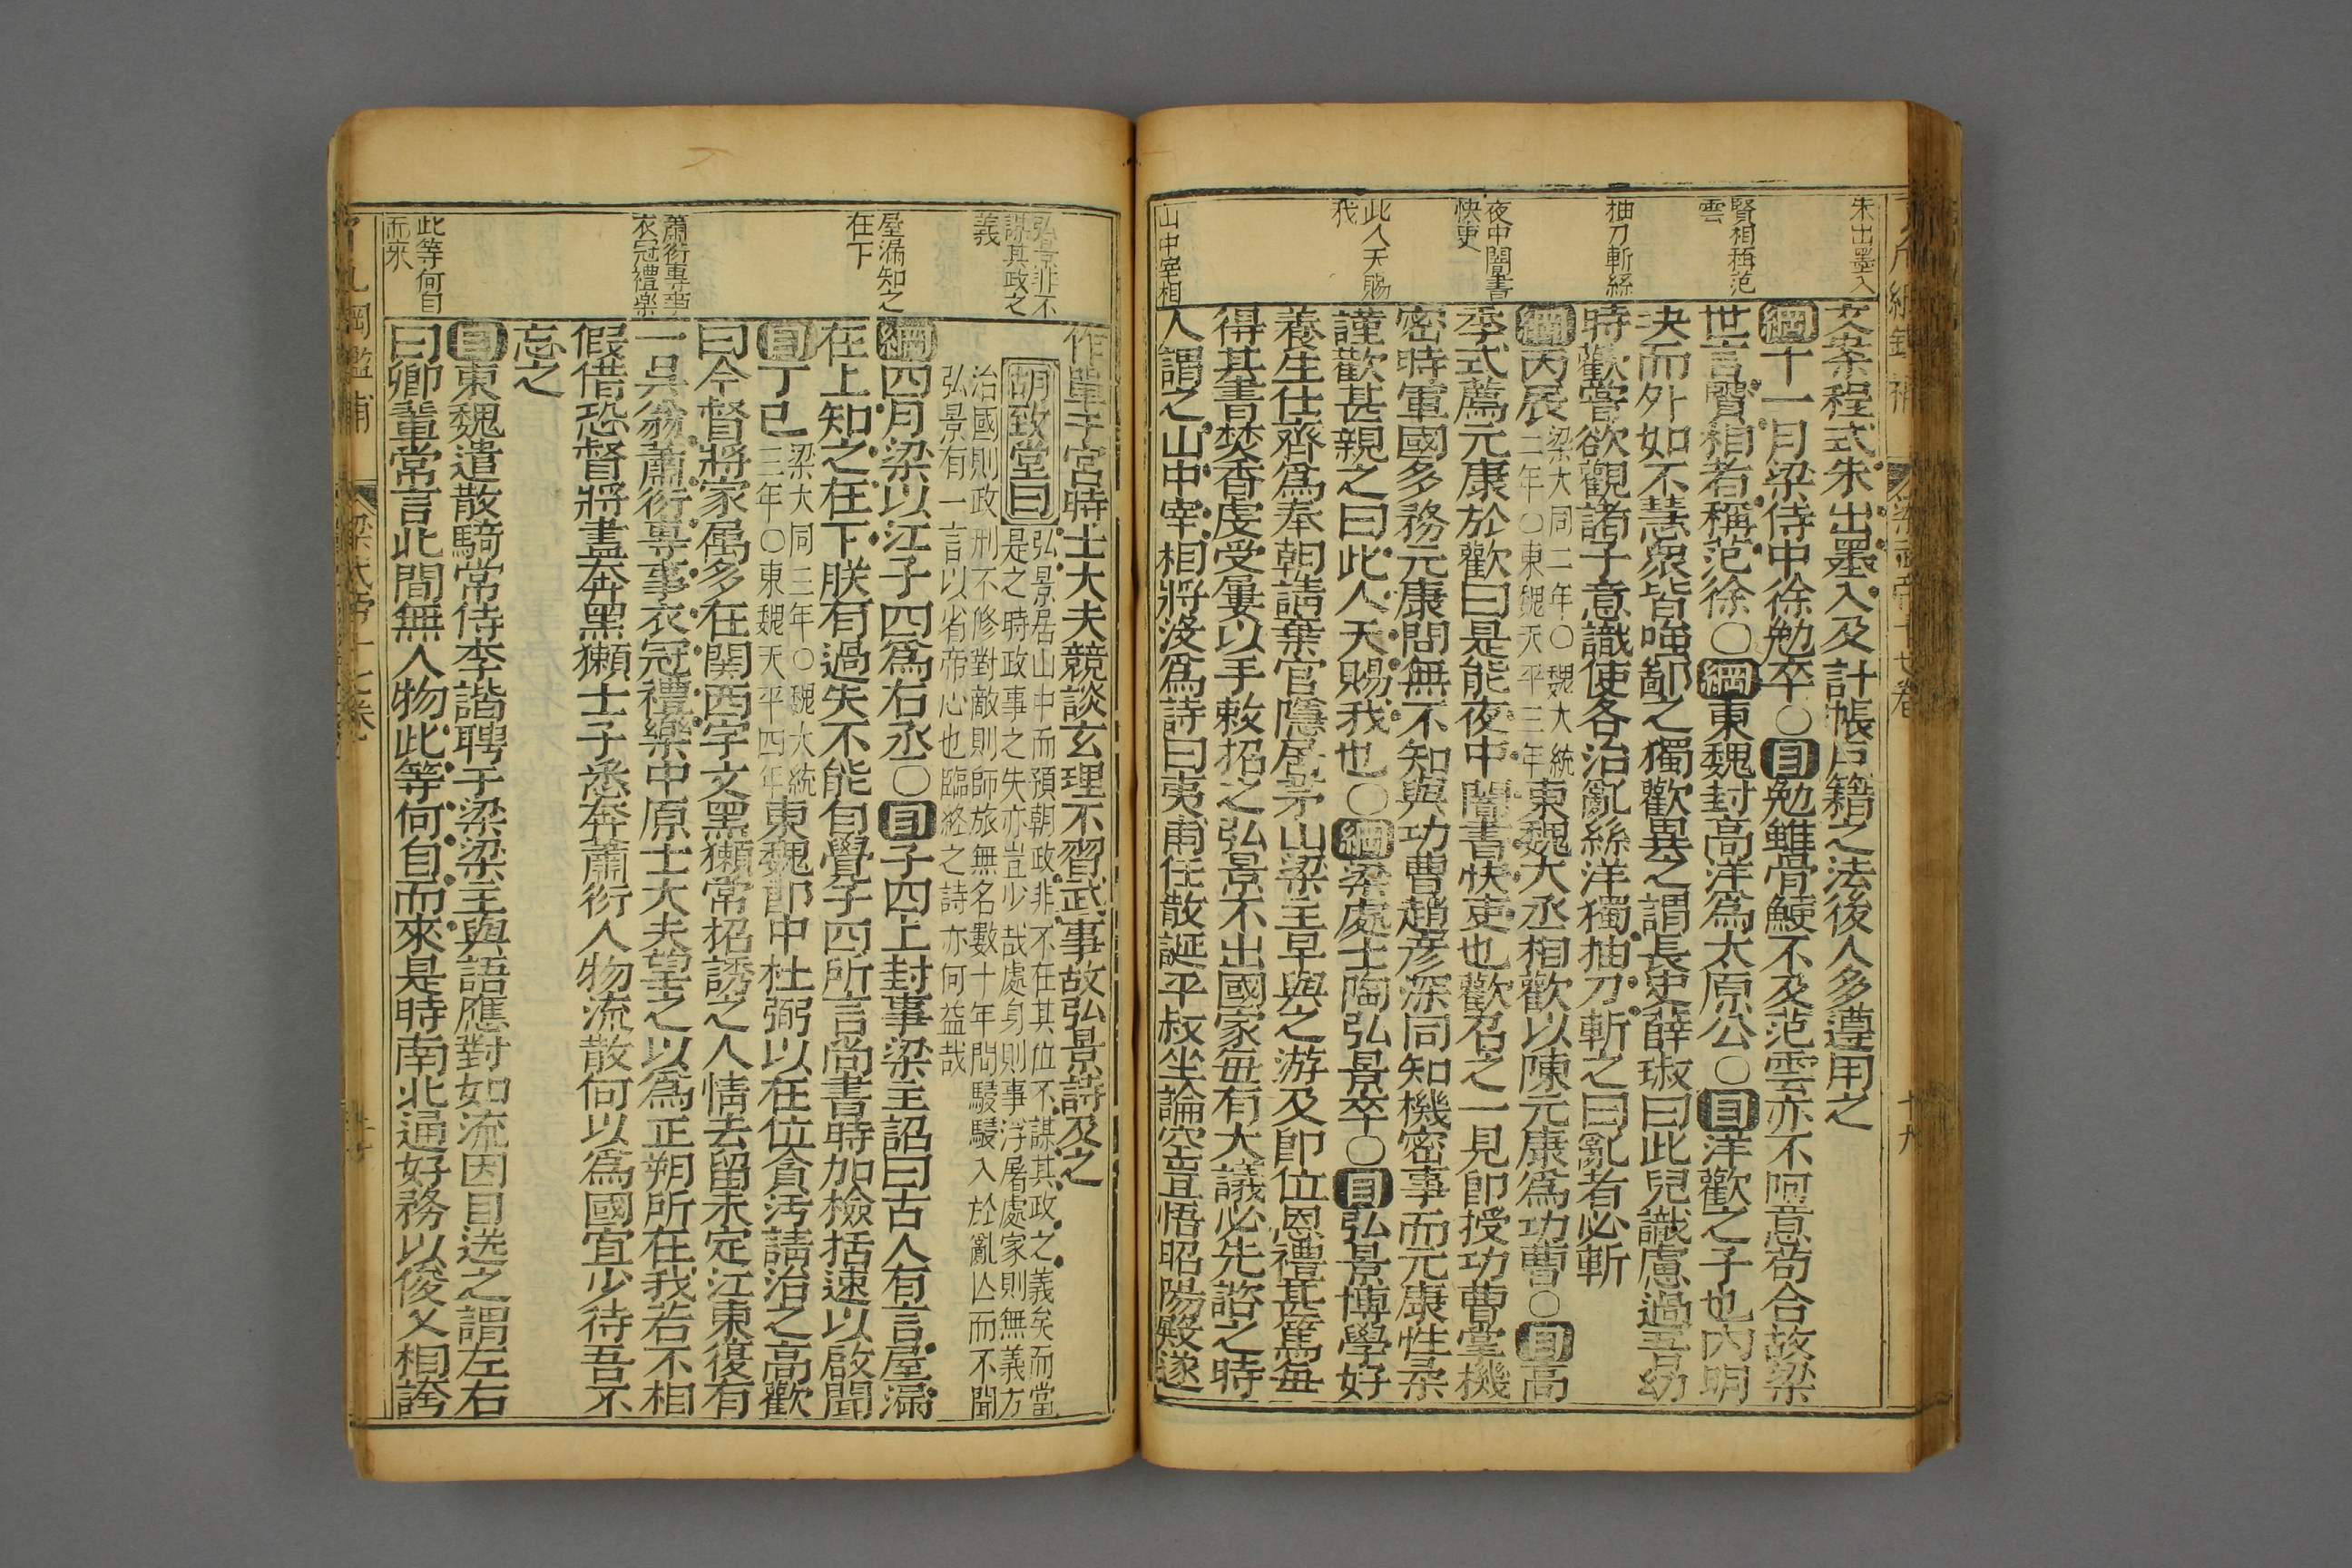 朱出墨入
賢相稱范
雲
抽刀斬絲
夜中闇書
快吏
此人天賜
我
山中宰相
文案程式朱出墨入及計帳戶籍之法後人多遵用之
綱十一月梁侍中徐勉卒○目勉雖骨鯁不及范雲亦不阿意苟合故梁
世言賢相者稱范徐○綱東魏封高洋爲太原公○目洋歡之子也內明
决而外如不慧衆皆嗤鄙之獨歡異之謂長史薛琡曰此兒識慮過吾幼
時歡嘗欲觀諸子意識使各治亂絲洋獨抽刀斬之曰亂者必斬
綱丙辰梁大同二年○魏大統二年○東魏天平三年東魏大丞相歡以陳元康爲功曹○目高
季式薦元康於歡曰是能夜中闇書快吏也歡召之一見即授功曹掌機
密時軍國多務元康問無不知與功曹趙彥深同知機密事而元康性柔
謹歡甚親之曰此人天賜我也○綱梁處士陶弘景卒○目弘景博學好
養生仕齊爲奉朝請棄官隱居茅山梁主早與之游及即位恩禮甚篤每
得其書焚香虔受屢以手敕招之弘景不出國家每有大議必先諮之時
人謂之山中宰相將沒爲詩曰夷甫任散誕平叔坐論空豈悟昭陽殿遂
弘景非不
謀其政之
義
屋漏知之
在下
蕭衍專事
衣冠禮樂
此等何自
而來
作單于宮時士大夫競談玄理不習武事故弘景詩及之
胡致堂曰弘景居山中而預朝政非不在其位不謀其政之義矣而當
是之時政事之失亦豈少哉處身則事浮屠處家則無義方
治國則政刑不修對敵則師旅無名數十年間駸駸入於亂亾而不聞
弘景有一言以省帝心也臨終之詩亦何益哉
綱四月梁以江子四爲右丞○目子四上封事梁主詔曰古人有言屋漏
在上知之在下朕有過失不能自覺子四所言尚書時加檢括速以啟聞
目丁巳梁大同三年○魏大統三年○東魏天平四年東魏郎中杜弼以在位貪汚請治之高歡
曰今督將家屬多在關西宇文黑獺常招誘之人情去留未定江東復有
一吳翁蕭衍專事衣冠禮樂中原士大夫望之以爲正朔所在我若不相
假借恐督將盡奔黑獺士子悉奔蕭衍人物流散何以爲國宜少待吾不
忘之
目東魏遣散騎常侍李諧聘于梁梁主與語應對如流因目送之謂左右
曰卿輩常言此間無人物此等何自而來是時南北通好務以俊乂相誇